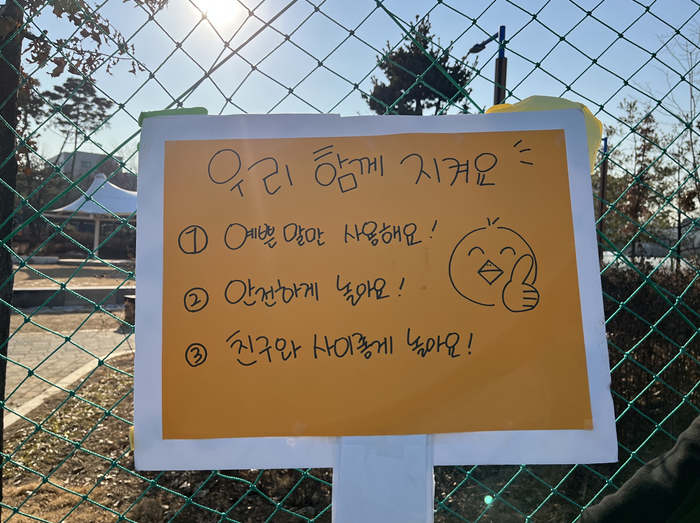 우리 함께 지켜요
① 예쁜 말만 사용해요!
② 안전하게 놀아요!
③ 친구와 사이좋게 놀아요!